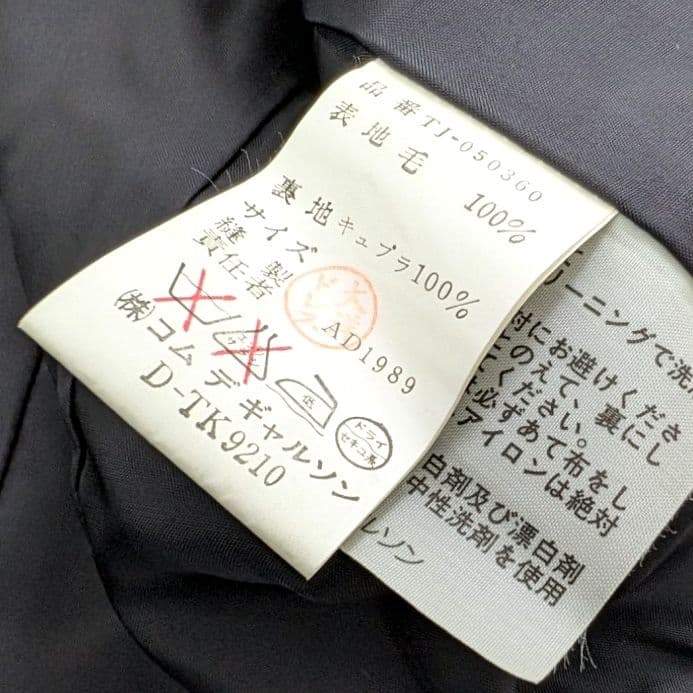 品番TJ-050360
表地毛 100%
裏地キュプラ100%
サイズ
縫製
責任者
AD1989
低
ドライ
セキユ系
(株)コム デ ギャルソン
D-TK9210
リーニングで洗
対にお避けくださ
とのえて、裏にし
ください。
必ずあて布をし
アイロンは絶対
白剤及び漂白剤
中性洗剤を使用
ルソン